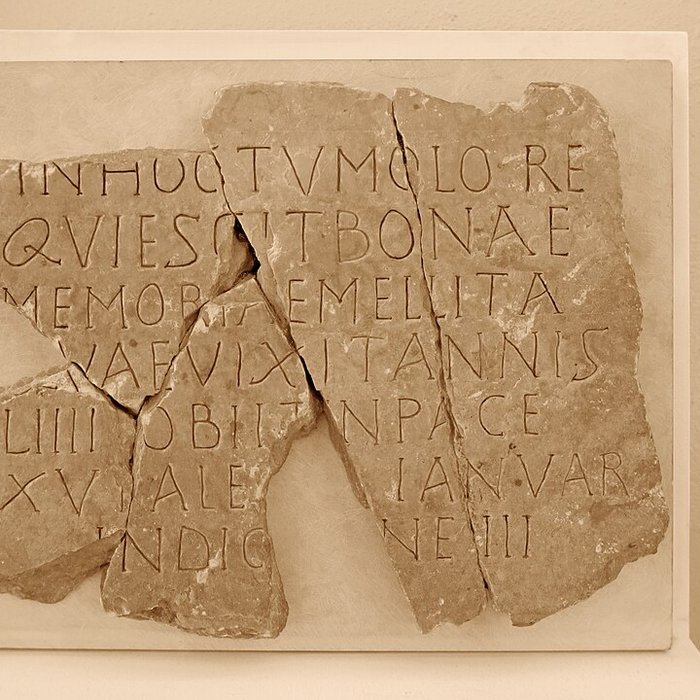 IN HOC TVMOLO RE
QVIESCIT BONAE
MEMORIAE MELLITA
VAE VIXIT ANNIS
LIIII OBIIT IN PACE
XV KALE IANVAR
INDIC NE III